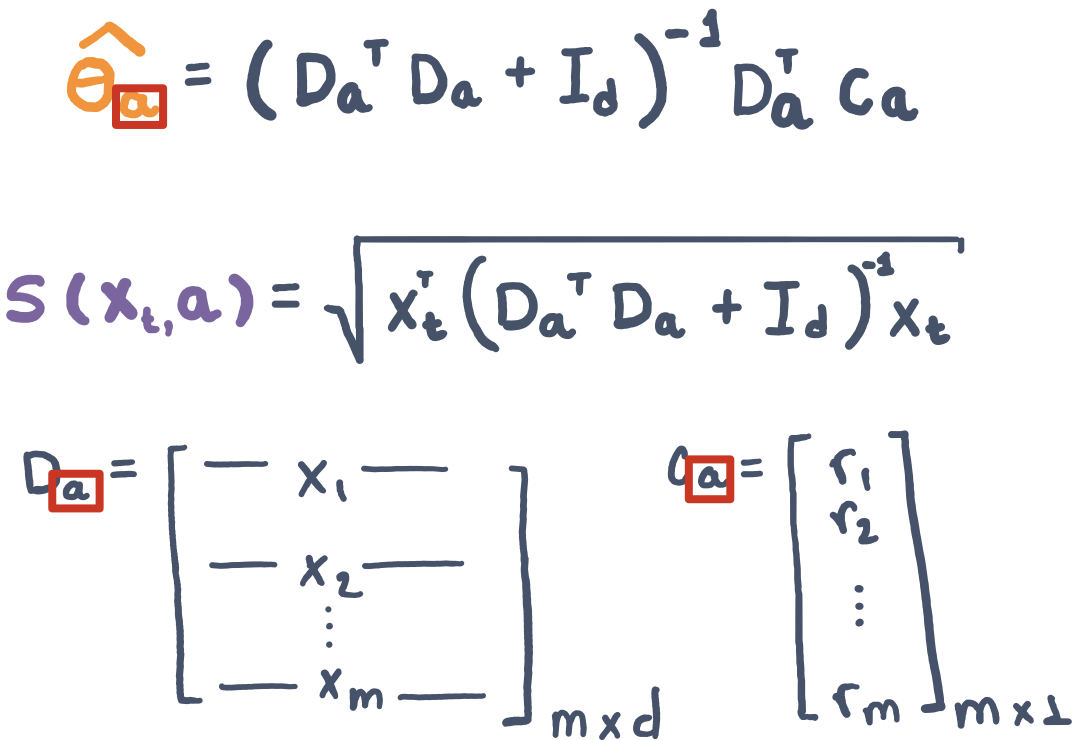 θ̂ₐ = (Dₐᵀ Dₐ + I_d)⁻¹ Dₐᵀ Cₐ
S(x_t, a) = √(x_tᵀ (Dₐᵀ Dₐ + I_d)⁻¹ x_t)
Dₐ = [— x₁ — — x₂ — ⋮ — x_m —] m×d
Cₐ = [r₁ r₂ ⋮ r_m] m×1